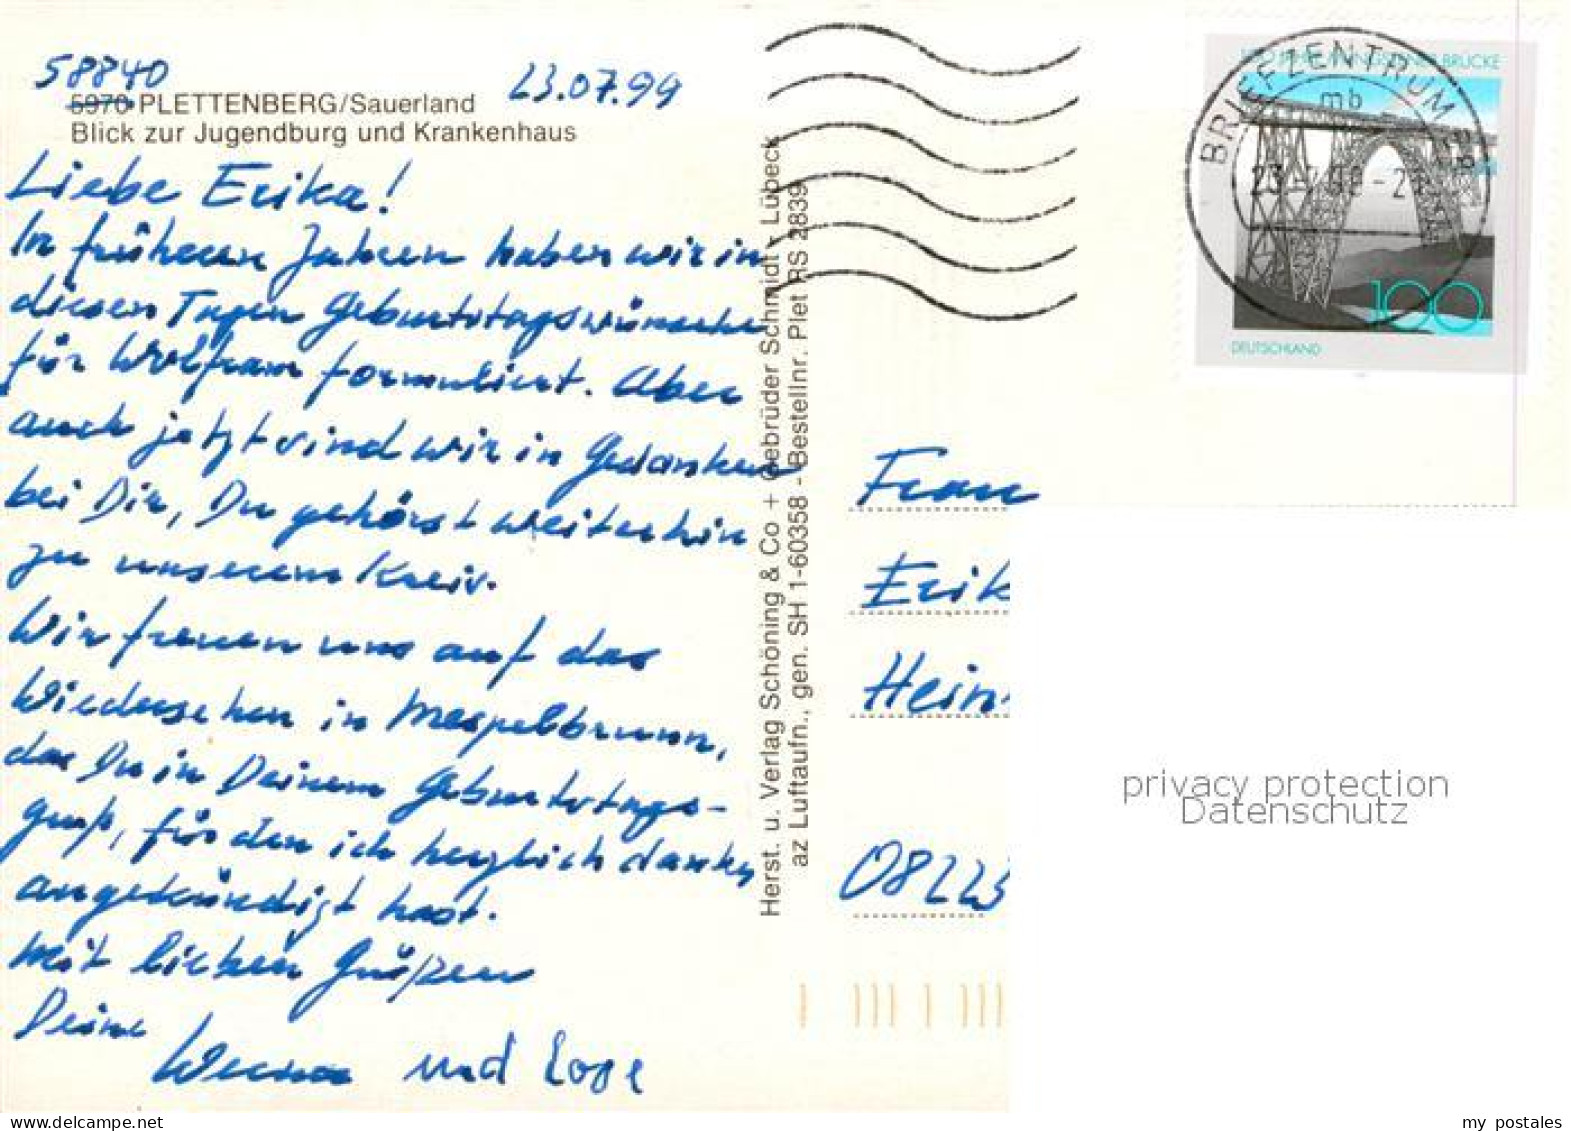 58840
23.07.99
5970 PLETTENBERG/Sauerland
Blick zur Jugendburg und Krankenhaus
Liebe Erika!
In früheren Jahren haben wir in
diesen Tagen Geburtstagswünsche
für Wolfram formuliert. Aber
auch jetzt sind wir in Gedanken
bei Dir, Du gehörst weiterhin
zu unserem Kreis.
Wir freuen uns auf das
Wiedersehen in Mespelbrunn,
das Du in Deinem Geburtstags-
gruß, für den ich herzlich danke,
angekündigt hast.
Mit lieben Grüßen
Deine
Werner und Lore
Herst. u. Verlag Schöning & Co + Gebrüder Schmidt · Lübeck
az Luftaufn., gen. SH 1-60358 - Bestellnr. Plet RS 2839
BRÜCKE
100
DEUTSCHLAND
BRIEFZENTRUM
mb
23
Frau
Erik
Hein
08223
privacy protection
Datenschutz
my postales